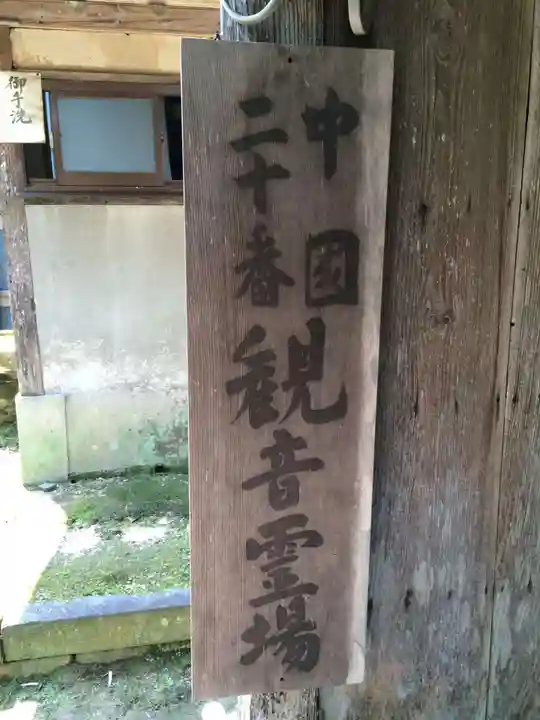 中國
二十番
観音霊場
御手洗